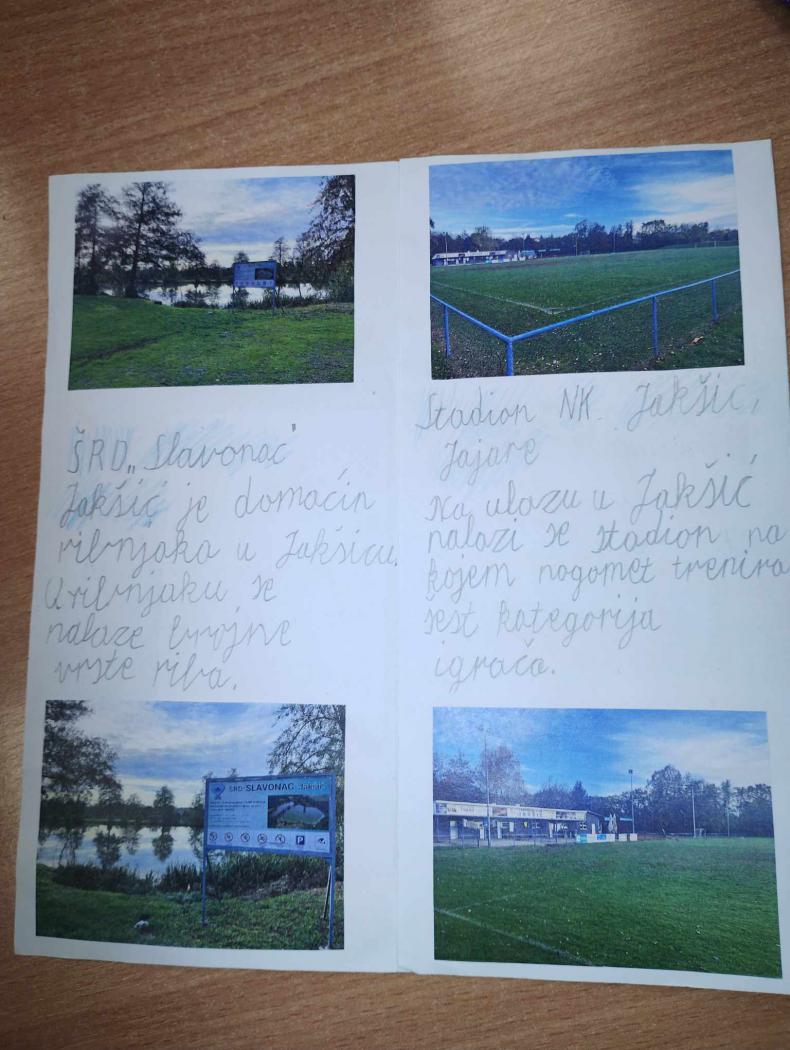 ŠRD „Slavonac"
Jakšić je domaćin
ribnjaka u Jakšicu.
U ribnjaku se
nalaze brojne
vrste riba.
ŠRD SLAVONAC Jakšić
P
Stadion NK Jakšić,
Jajare
Na ulazu u Jakšić
nalazi se stadion na
kojem nogomet trenira
šest kategorija
igrača.